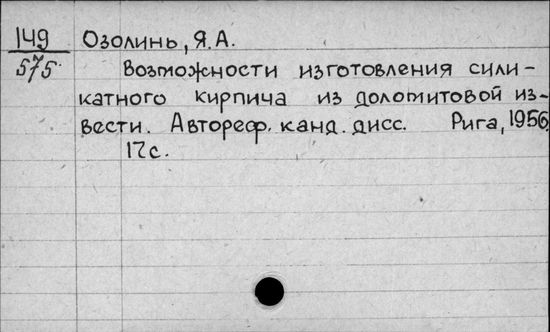 149 Озолинь, Я.А.
575 Возможности изготовления сили-
катного кирпича из доломитовой из-
вести. Автореф. канд. дисс. Рига, 1956,
17с.